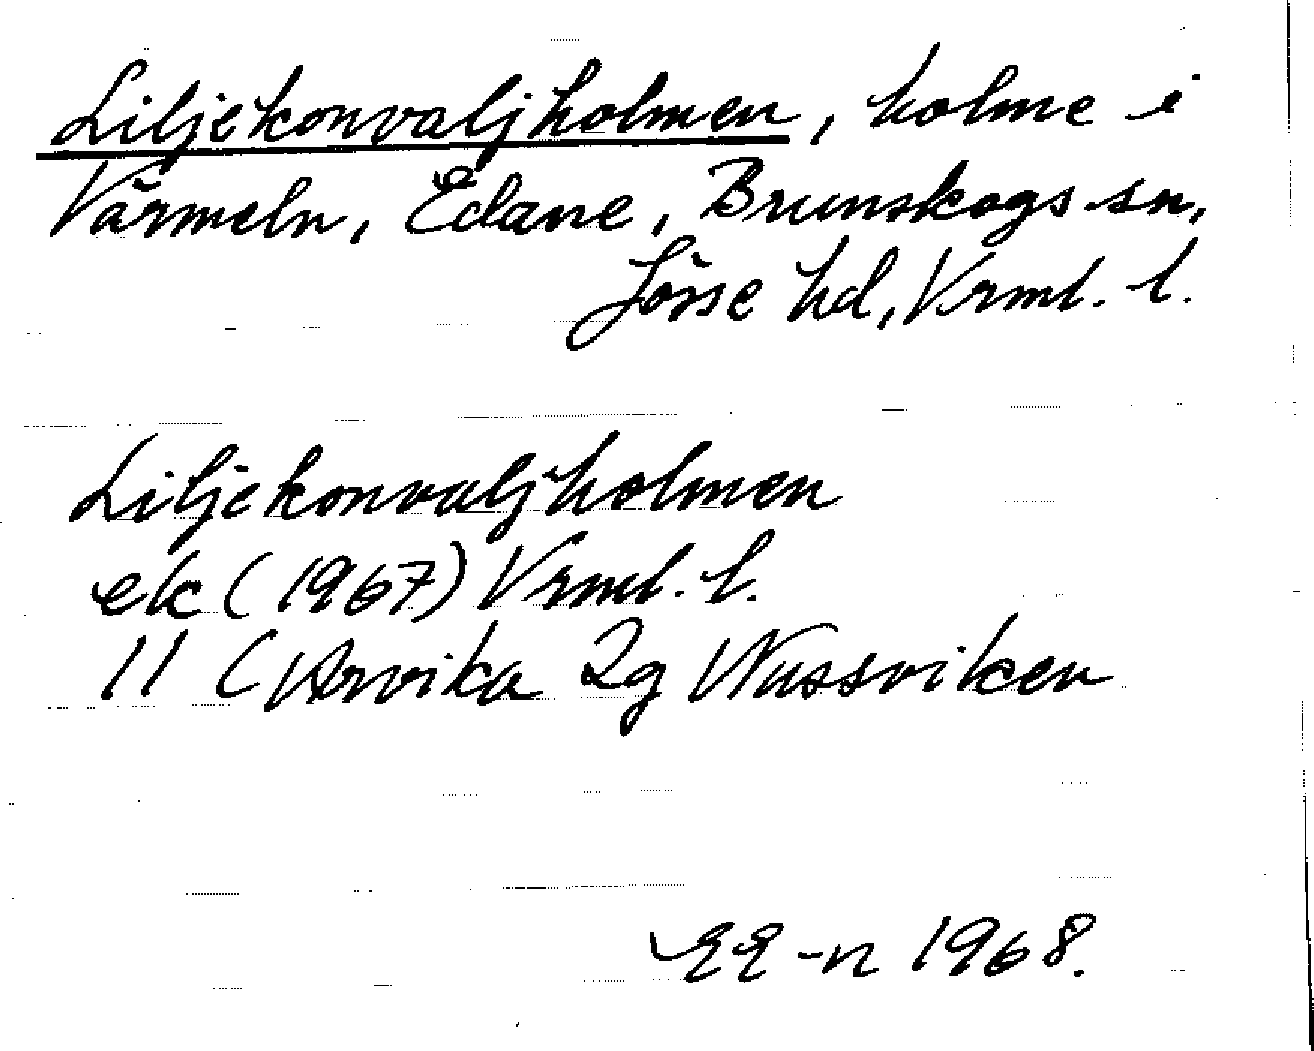 Liljekonvaljholmen, holme i
Värmeln, Edane, Brunskogs sn,
Jösse hd, Vrml. l.
Liljekonvaljholmen
ek (1967) Vrml. l.
11 (Arvika 2g Nussviken
EE-n 1968.